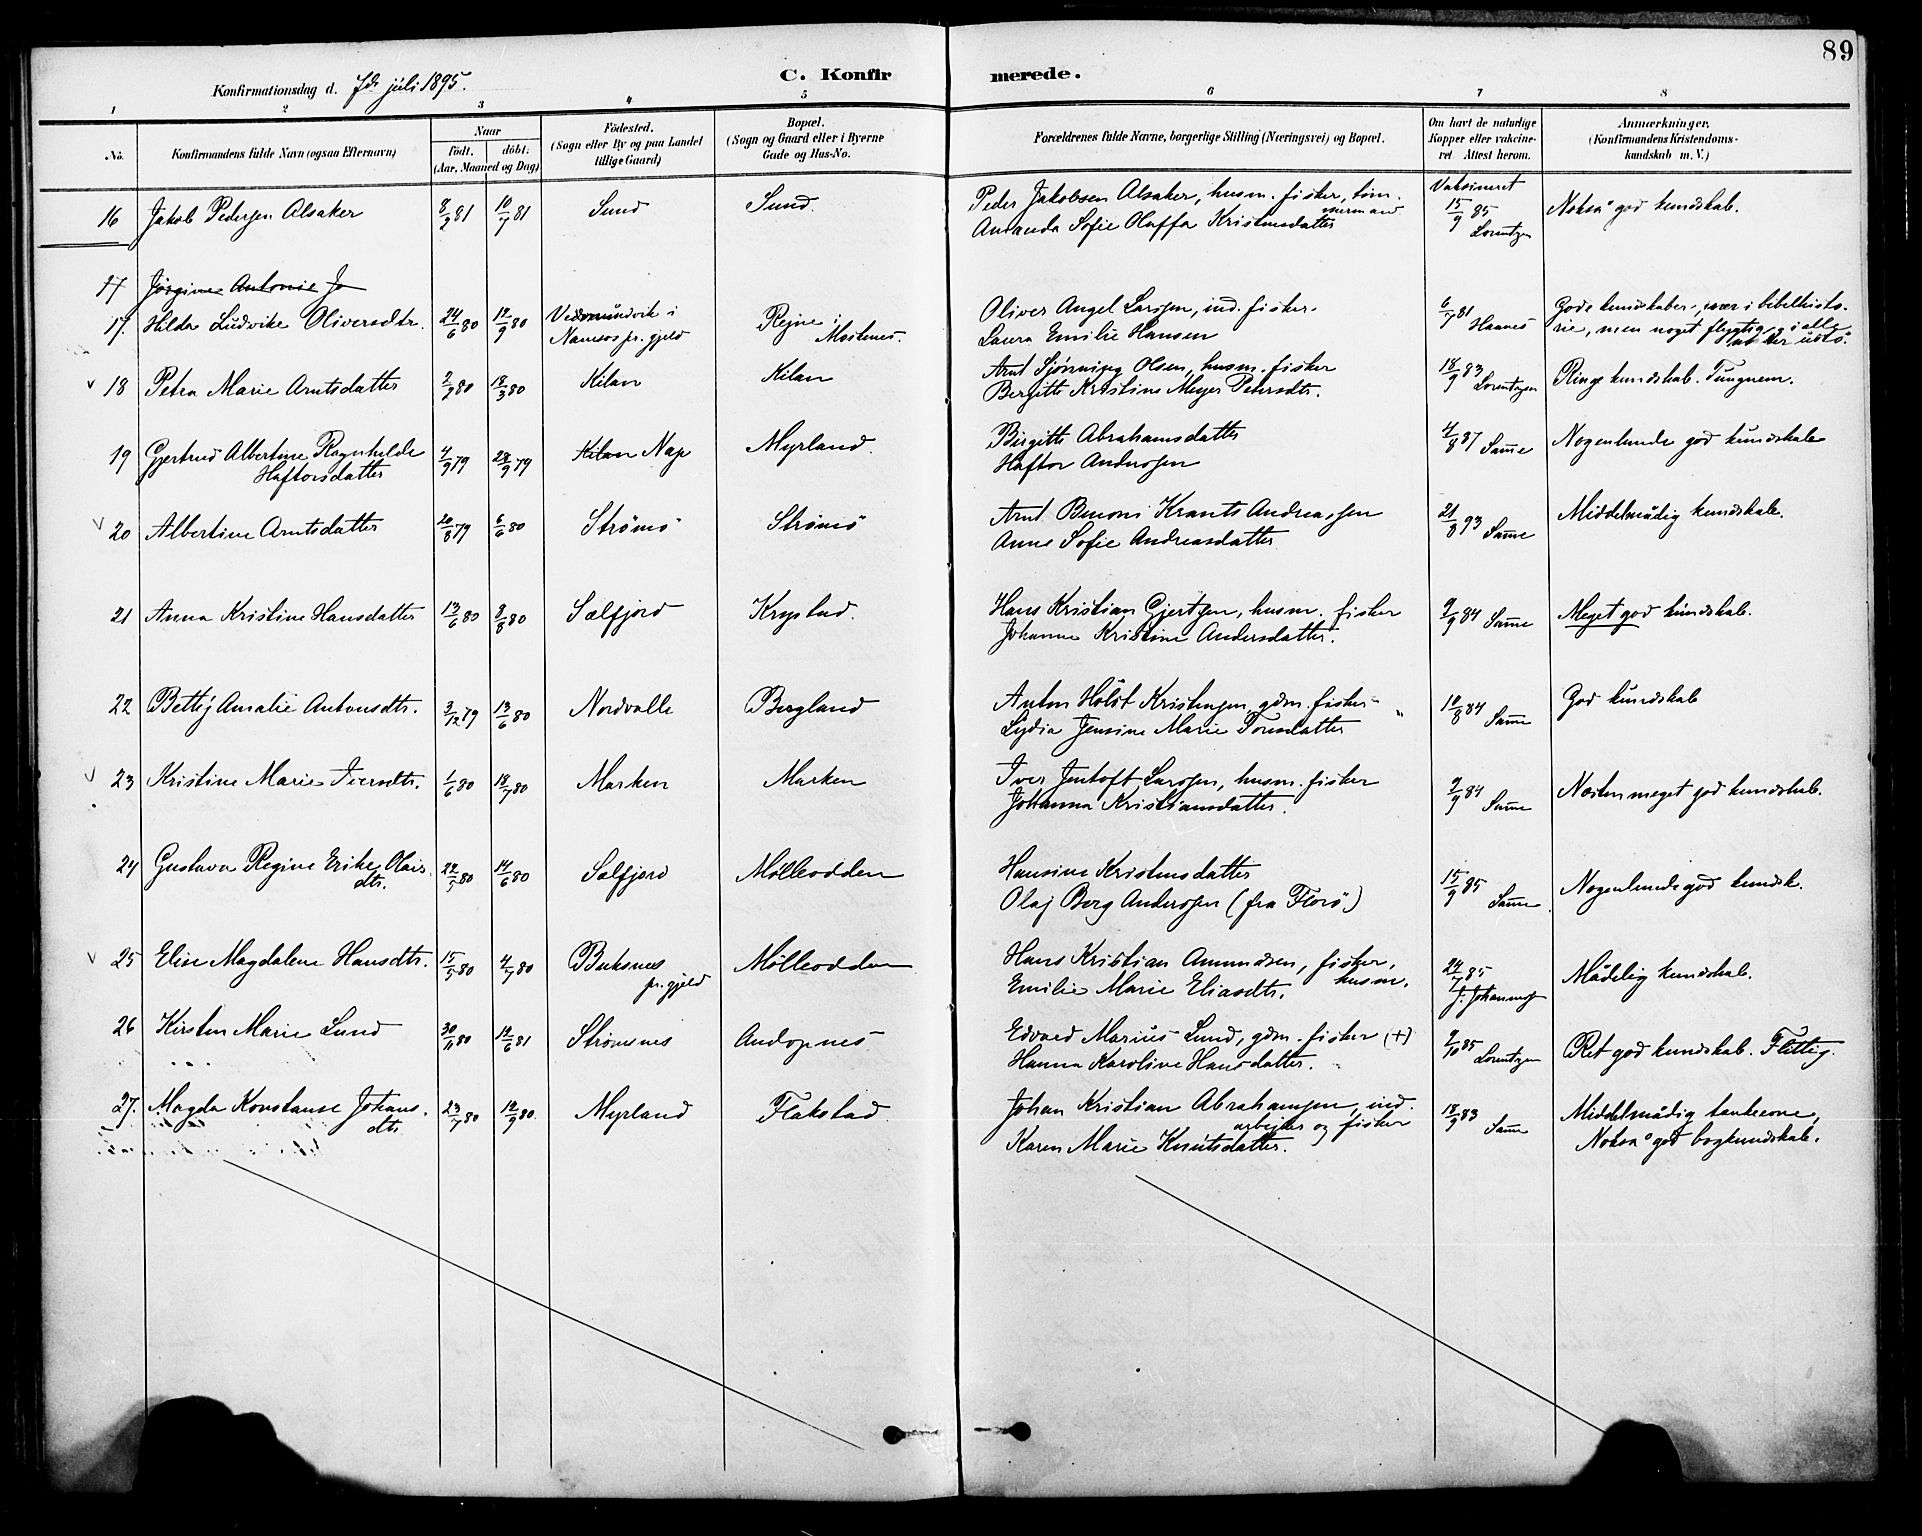 89
Konfirmationsdag d. 7de juli 1895.
C. Konfirmerede.
1 2 3 4 5 6 7 8
No.
Konfirmandens fulde Navn (ogsaa Efternavn)
Naar
födt. döbt.
(Aar, Maaned og Dag)
Födested.
(Sogn eller By og paa Landet
tillige Gaard)
Bopæl.
(Sogn og Gaard eller i Byerne
Gade og Hus-No.
Forældrenes fulde Navne, borgerlige Stilling (Næringsvei) og Bopæl.
Om havt de naturlige
Kopper eller vakcine-
ret Attest herom.
Anmærkninger.
(Konfirmandens Kristendoms-
kundskab m. V.)
16 Jakob Pedersen Alsaker 8/2 81 10/7 81 Sund Sund Peder Jakobsen Alsaker, husm. fisker, töm-
mermand
Amanda Sofie Oluffa Kristensdatter
Vaksineret
15/9 85
Lorentzen
Nokså god kundskab.
17 Jörgine Antonie Jo
17. Hilda Ludvike Oliversdtr. 24/6 80 12/9 80 Vedmundvik i
Namsos pr. gjeld
Rejne i
Moskenes.
Oliver Angel Larsen, ind. fisker.
Laura Emilie Hansen
6/7 81 Haanes
Gode kundskaber, især i bibelhisto-
rie, men noget flygtig og i alle
18 Petra Marie Arntsdatter 2/2 80 18/3 80 Kilan Kilan Arnt Sjönning Olsen, husm. fisker
Bergitte Kristine Meyer Petersdtr.
18/9 83 Lorentzen
Ringe kundskab. Tungnem.
19 Gjertrud Albertine Ragnhilde
Haftorsdatter
4/9 79 28/9 79 Kilan Nap Myrland.
Birgitte Abrahamsdatter
Haftor Andersen
4/8 87 Samme
Nogenlunde god kundskab
20 Albertine Arntsdatter 20/8 79 6/6 80 Strömö Strömö
Arnt Benoni Krants Andreassen
Anne Sofie Andreasdatter
21/8 93 Samme
Middelmådig kundskab.
21 Anna Kristine Hansdatter 13/6 80 8/8 80 Sælfjord Krystad.
Hans Kristian Gjertsen, husm. fisker
Johanne Kristine Andersdatter.
9/9 84 Samme
Meget god kundskab.
22 Betty Amalie Antonsdtr. 3/12 79 13/6 80 Nordvalle Bergland
Anton Holst Kristensen, gdm. fisker
Lydia Jensine Marie Tonsdatter
10/8 84 Samme
God kundskab
23 Kristine Marie Iversdtr. 1/6 80 18/7 80 Marken Marken
Iver Jentoft Larsen, husm. fisker
Johanna Kristiansdatter.
9/9 84 Samme
Næsten meget god kundskab.
24 Gustava Regine Erike Olais
dtr.
22/5 80 14/6 80 Sælfjord Mölleodden
Hansine Kristensdatter
Olaj Berg Andersen (fra Florö.)
15/9 85 Samme
Nogenlunde god kundsk.
25 Elise Magdalene Hansdtr. 15/5 80 4/7 80 Buksnes
pr. gjeld
Mölleodden
Hans Kristian Amundsen, fisker,
husm.
Emilie Marie Eliasdtr.
24/7 85
J. Johannes
Mådelig kundskab.
26 Kirsten Marie Lund 30/11 80 12/6 81 Strömsnes Andopnes
Edvard Marius Lund, gdm. fisker (+)
Hanna Karoline Hansdatter.
9/10 85 Lorentzen
Ret god kundskab. Flittig.
27. Magda Konstanse Johans-
dtr.
23/7 80 12/9 80. Myrland Flakstad
Johan Kristian Abrahamsen, ind.
arbejder og fisker
Karen Marie Knutsdatter.
18/9 83 Samme
Middelmådig tankeevne,
Nokså god bogkundskab.